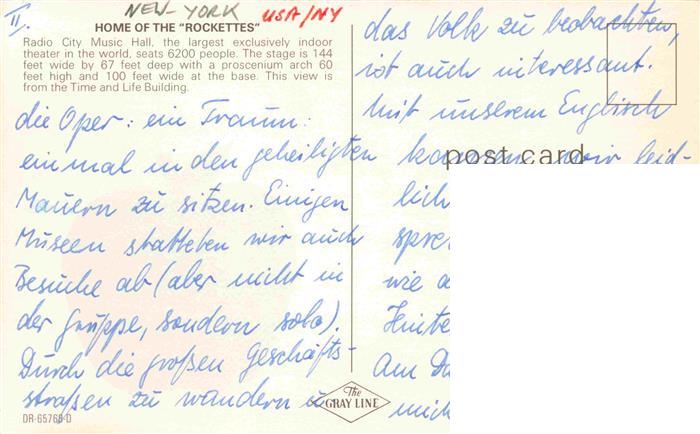 II.
NEW-YORK USA/NY
HOME OF THE "ROCKETTES"
Radio City Music Hall, the largest exclusively indoor
theater in the world, seats 6200 people. The stage is 144
feet wide by 67 feet deep with a proscenium arch 60
feet high and 100 feet wide at the base. This view is
from the Time and Life Building.
die Oper: ein Traum:
einmal in den geheiligten
Mauern zu sitzen. Einigen
Museen statteten wir auch
Besuche ab (aber nicht in
der Gruppe, sondern solo).
Durch die großen Geschäfts-
straßen zu wandern u.
DR-65768-D
The
GRAY LINE
das Volk zu beobachten,
ist auch interessant.
Mit unserem Englisch
post card
kommen wir leid-
lich
spre
wie
Hinte
Am
mich